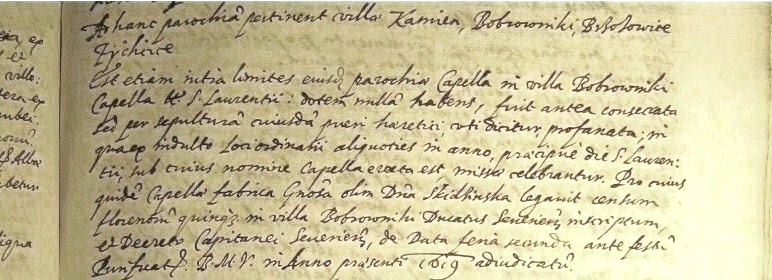 Ad hanc parochiã pertinent villa Kamien, Bobrowniki, Brzozowice
Zychcice
Est etiam intra limites eiusd. parochiæ Capella in villa Bobrowniki
Capella tt. S. Laurentii: dotem nullã habens, fuit antea consecrata
sed per sepulturã cuiusdã pueri hæretici, uti dicitur, profanata; in
qua ex indulto Loci ordinarii aliquoties in anno, præcipuè die S. Lauren:
tii, sub cuius nomine Capella erecta est, missæ celebrantur. Pro cuius
quidẽ Capellæ fabrica Gnosa olim Dña legavit censum
florenorũ quinqz. in villa Bobrowniki Ducatus Severieñ. inscriptum,
et Decreto Capitanei Severieñ, de Data feria secunda ante festũ
Purificat. B. M. V. in Anno præsenti 1619 adiudicatũ.